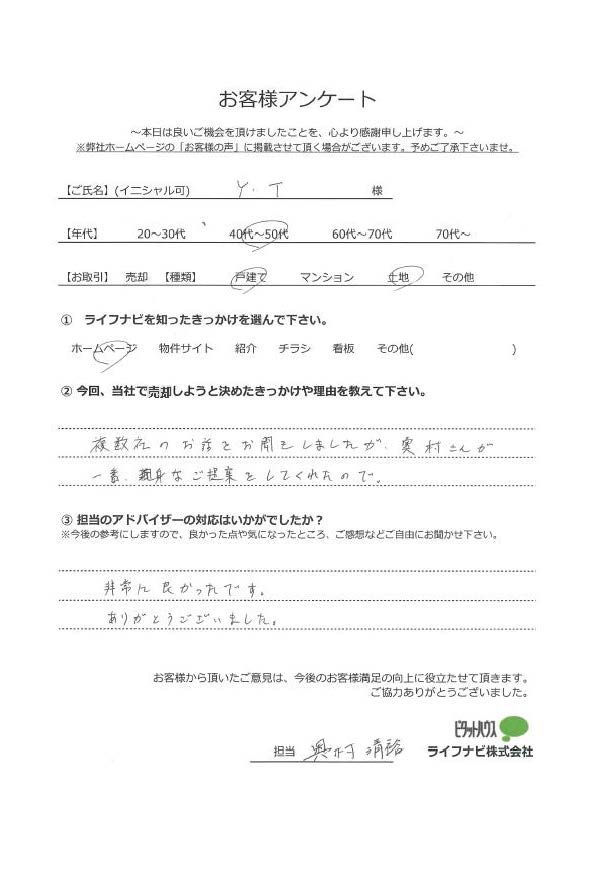 お客様アンケート
～本日は良いご機会を頂けましたことを、心より感謝申し上げます。～
※弊社ホームページの「お客様の声」に掲載させて頂く場合がございます。予めご了承下さいませ。
【ご氏名】(イニシャル可) Y. T 様
【年代】 20～30代 40代～50代 60代～70代 70代～
【お取引】 売却 【種類】 戸建て マンション 土地 その他
① ライフナビを知ったきっかけを選んで下さい。
ホームページ 物件サイト 紹介 チラシ 看板 その他( )
② 今回、当社で売却しようと決めたきっかけや理由を教えて下さい。
複数社のお話をお聞きしましたが、奥村さんが
一番、親身なご提案をしてくれたので。
③ 担当のアドバイザーの対応はいかがでしたか？
※今後の参考にしますので、良かった点や気になったところ、ご感想などご自由にお聞かせ下さい。
非常に良かったです。
ありがとうございました。
お客様から頂いたご意見は、今後のお客様満足の向上に役立たせて頂きます。
ご協力ありがとうございました。
ピタットハウス
担当 奥村 ライフナビ株式会社